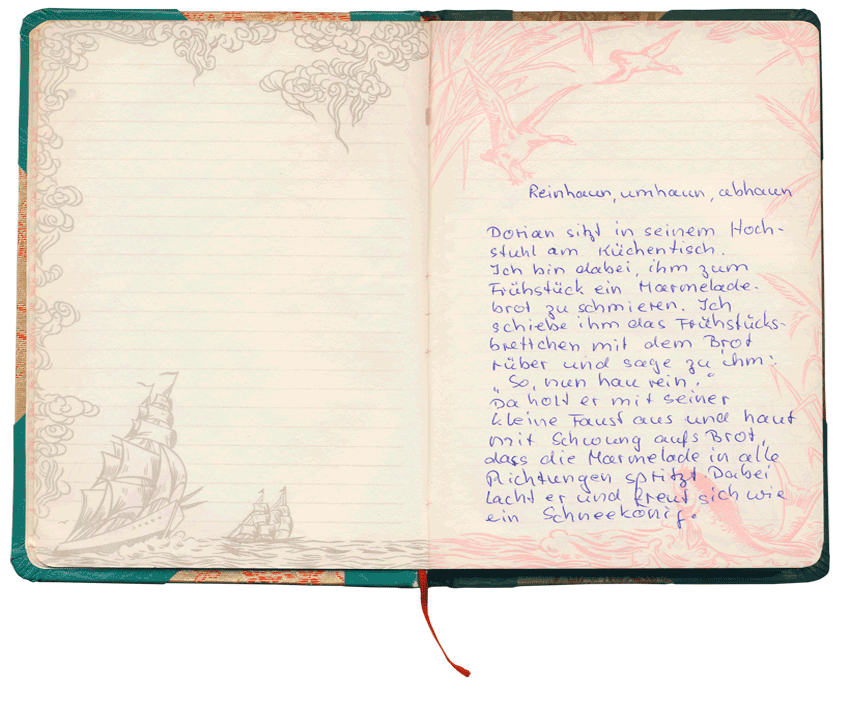 Reinhaun, umhaun, abhaun
Dorian sitzt in seinem Hoch-
stuhl am Küchentisch.
Ich bin dabei, ihm zum
Frühstück ein Marmelade-
brot zu schmieren. Ich
schiebe ihm das Frühstücks-
brettchen mit dem Brot
rüber und sage zu ihm:
„So, nun hau rein."
Da holt er mit seiner
kleine Faust aus und haut
mit Schwung aufs Brot,
dass die Marmelade in alle
Richtungen spritzt Dabei
lacht er und freut sich wie
ein Schneekönig.